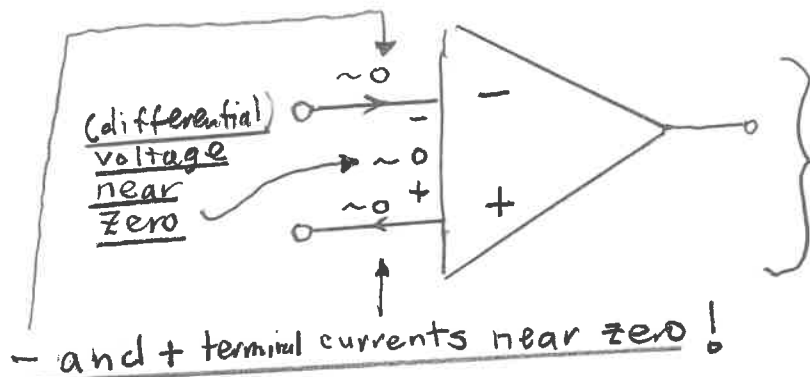 ~0
(differential)
voltage
near
zero
-
~0
+
~0
-
+
- and + terminal currents near zero!